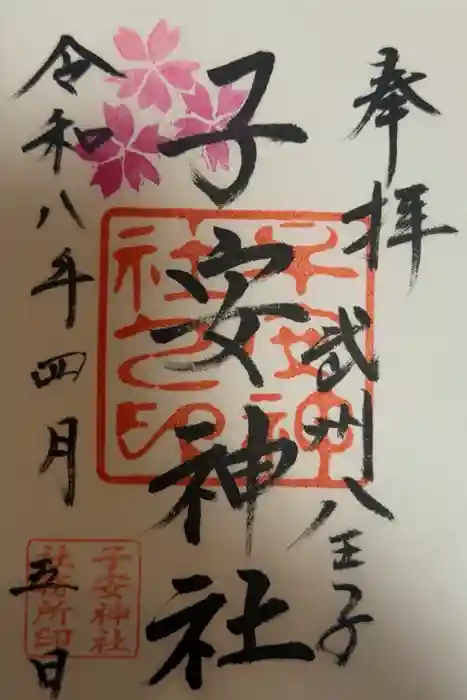 奉拝
武州八王子
子安神社
令和八年四月五日
子安神社之印
子安神社
社務所印